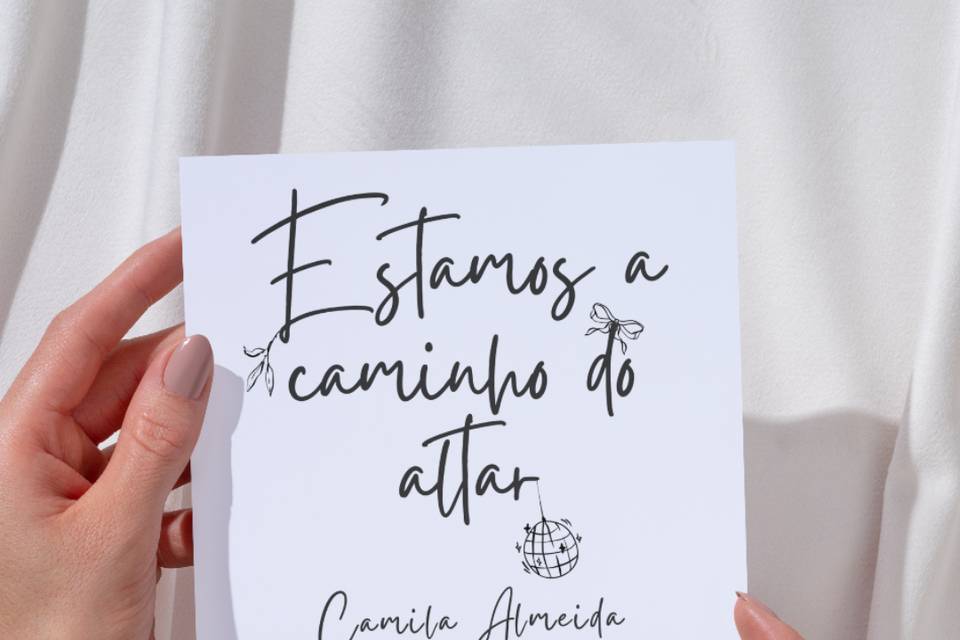 Estamos a
caminho do
altar
Camila Almeida